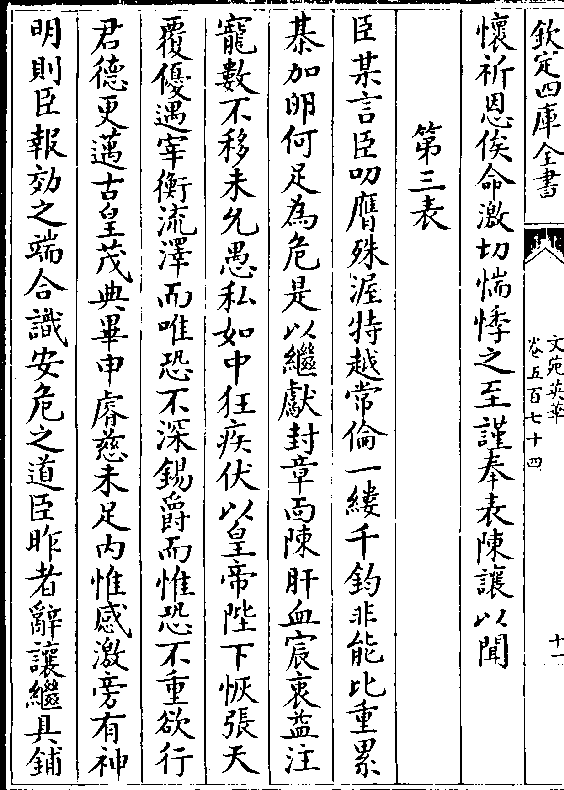 欽定四庫全書
文苑英華
卷五百七十四
十一
懷祈恩俟命激切惴悸之至謹奉表陳讓以聞
第三表
臣某言臣叨膺殊渥特越常倫一縷千鈞非能比重累
棊加卵何足為危是以繼獻封章靣陳肝血宸衷益注
寵數不移未允愚私如中狂疾伏以皇帝陛下恢張天
覆優遇宰衡流澤而唯恐不深錫爵而惟恐不重欲行
君德更邁古皇茂典畢申睿慈未足内惟感激旁有神
明則臣報効之端合識安危之道臣昨者辭讓繼具鋪